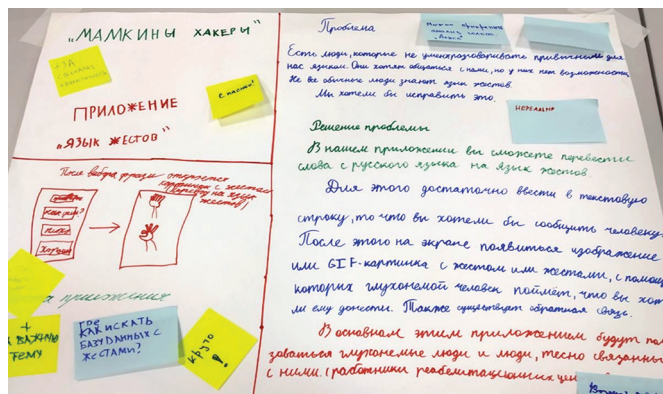 „МАМКИНЫ ХАКЕРЫ"
+ЗА
ПРИЛОЖЕНИЕ
„ЯЗЫК ЖЕСТОВ"
После выбора фразы открывается
картинки с жестами
жестов)
Как дела?
+
ВАЖНУЮ
ТЕМУ
ГДЕ
КАК ИСКАТЬ
БАЗУ ДАННЫХ С
ЖЕСТАМИ?
круто!
Проблема
Есть люди, которые не умеют разговаривать привычным для
нас языком. Они хотят общаться с нами, но у них нет возможности.
Не все обычные люди знают язык жестов.
Мы хотели бы исправить это.
НЕРЕАЛЬНО
Решение проблемы
В нашем приложении вы сможете перевести
слова с русского языка на язык жестов.
Для этого достаточно ввести в текстовую
строку, то что вы хотели бы сообщить человеку.
После этого на экране появиться изображение
или GIF-картинка с жестом или жестами, с помощ
которых глухонемой человек поймёт, что вы хот
ли ему донести. Также существует обратная связь.
В основном этим приложением будут пол
зоваться глухонемые люди и люди, тесно связанны
с ними. (работники реабелитационных цен